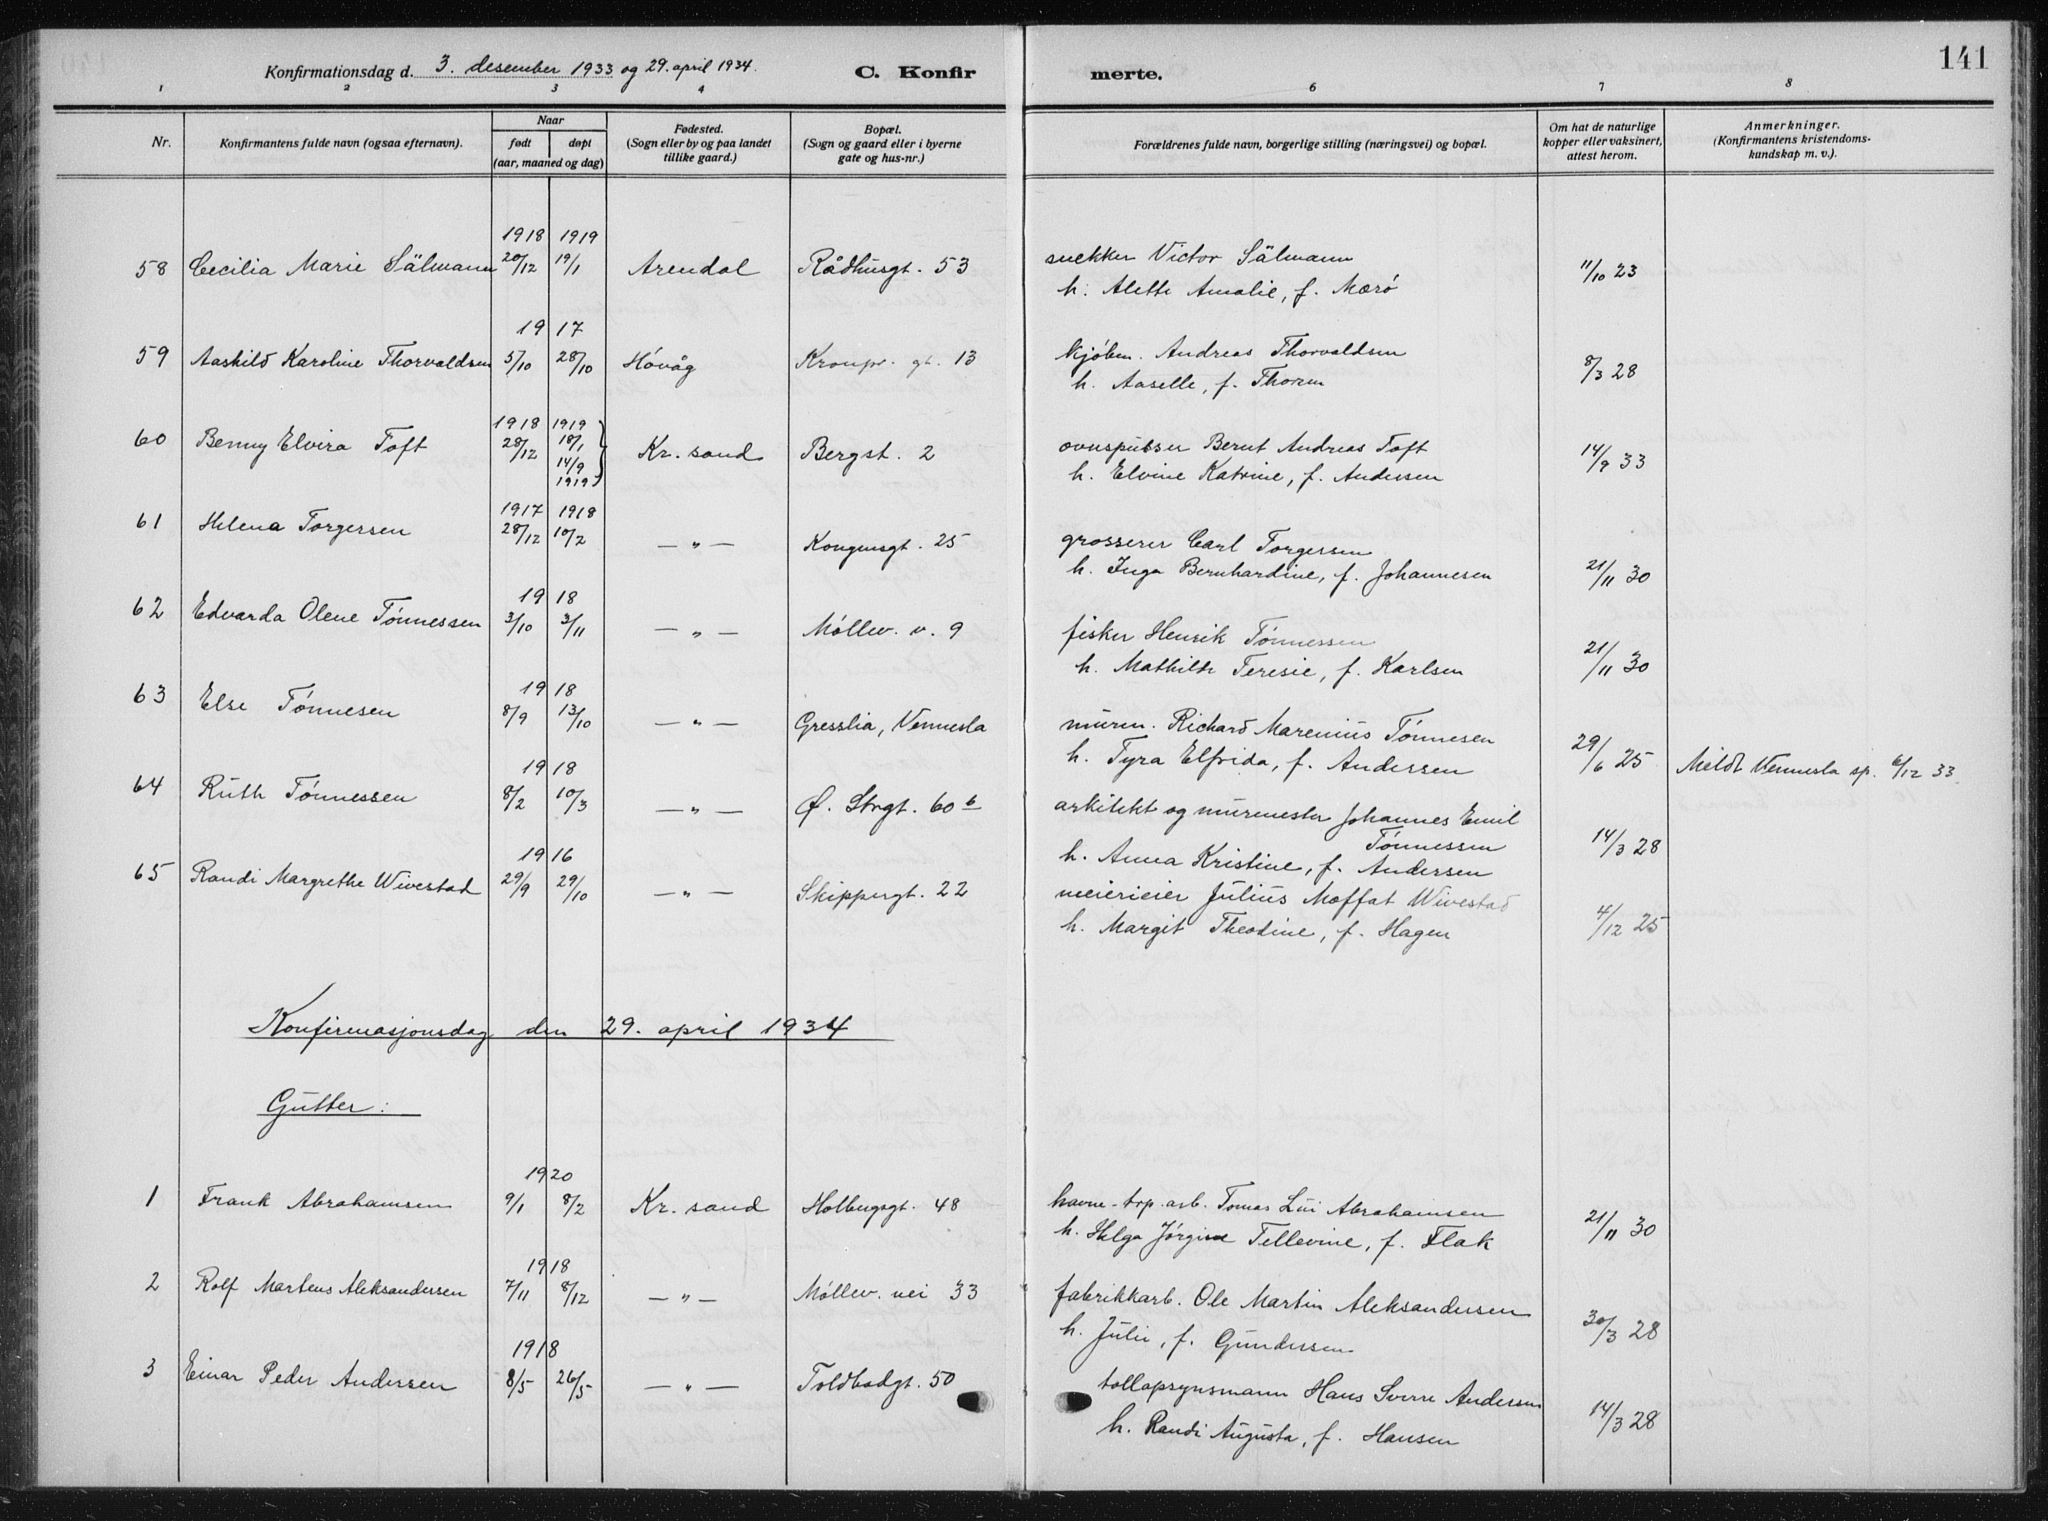 141
Konfirmationsdag d. 3. desember 1933 og 29. april 1934. C. Konfir merte.
1 2 3 4 6 7 8
Nr. Konfirmantens fulde navn (ogsaa efternavn). Naar født døpt (aar, maaned og dag) Fødested. (Sogn eller by og paa landet tillike gaard.) Bopæl. (Sogn og gaard eller i byerne gate og hus-nr.) Forældrenes fulde navn, borgerlige stilling (næringsvei) og bopæl. Om hat de naturlige kopper eller vaksinert, attest herom. Anmerkninger. (Konfirmantens kristendoms- kundskap m. v.).
1918 1919
58 Cecilia Marie Sälmann 20/12 19/1 Arendal Rådhusgt. 53 snekker Victor Sälmann 11/10 23
h. Alette Amalie, f. Mærø
1917
59 Aaskild Karoline Thorvaldsen 5/10 28/10 Høvåg Kronpr. gt. 13 kjøbm. Andreas Thorvaldsen 8/3 28
h. Aaselle, f. Thoren
1918 1919
60 Benny Elvira Toft 28/12 18/1 Kr. sand Bergst. 2 ovnspusser Bernt Andreas Toft 14/9 33
14/9 1919 h. Elvine Katrine, f. Andersen
1917 1918
61 Helena Torgersen 28/12 10/2 — „ — Kongensgt. 25 grosserer Carl Torgersen
h. Inga Bernhardine, f. Johannesen 21/11 30
1918
62 Edvarda Olene Tønnessen 3/10 3/11 — „ — Møllev. v. 9 fisker Henrik Tønnessen
h. Mathilde Teresie, f. Karlsen 21/11 30
1918
63 Else Tønnesen 8/9 13/10 — „ — Gresslia, Vennesla murm. Richard Marenius Tønnesen
h. Tyra Elfrida, f. Andersen 29/6 25 Meldt Vennesla sp. 6/12 33.
1918
64 Ruth Tønnessen 8/2 10/3 — „ — Ø. Strgt. 60 b arkitekt og murmester Johannes Emil
Tønnessen 14/3 28
h. Anna Kristine, f. Andersen
1916
65 Randi Margrethe Wivestad 29/9 29/10 — „ — Skippergt. 22 meierieier Julius Moffat Wivestad
h. Margit Theodine, f. Hagen 4/12 25
Konfirmasjonsdag den 29. april 1934
Gutter:
1920
1 Frank Abrahamsen 9/1 8/2 Kr. sand Holbergsgt. 48 havne-trp. arb. Tomas Lui Abrahamsen
h. Helga Jørgine Tellevine, f. Flak 21/11 30
1918
2 Rolf Martens Aleksandersen 7/11 8/12 — „ — Møllev. vei 33 fabrikkarb. Ole Martin Aleksandersen
h. Julie, f. Gundersen 30/3 28
1918
3 Einar Peder Andersen 8/5 26/5 — „ — Toldbodgt. 50 tollopsynsmann Hans Sverre Andersen
h. Randi Augusta, f. Hansen 14/3 28